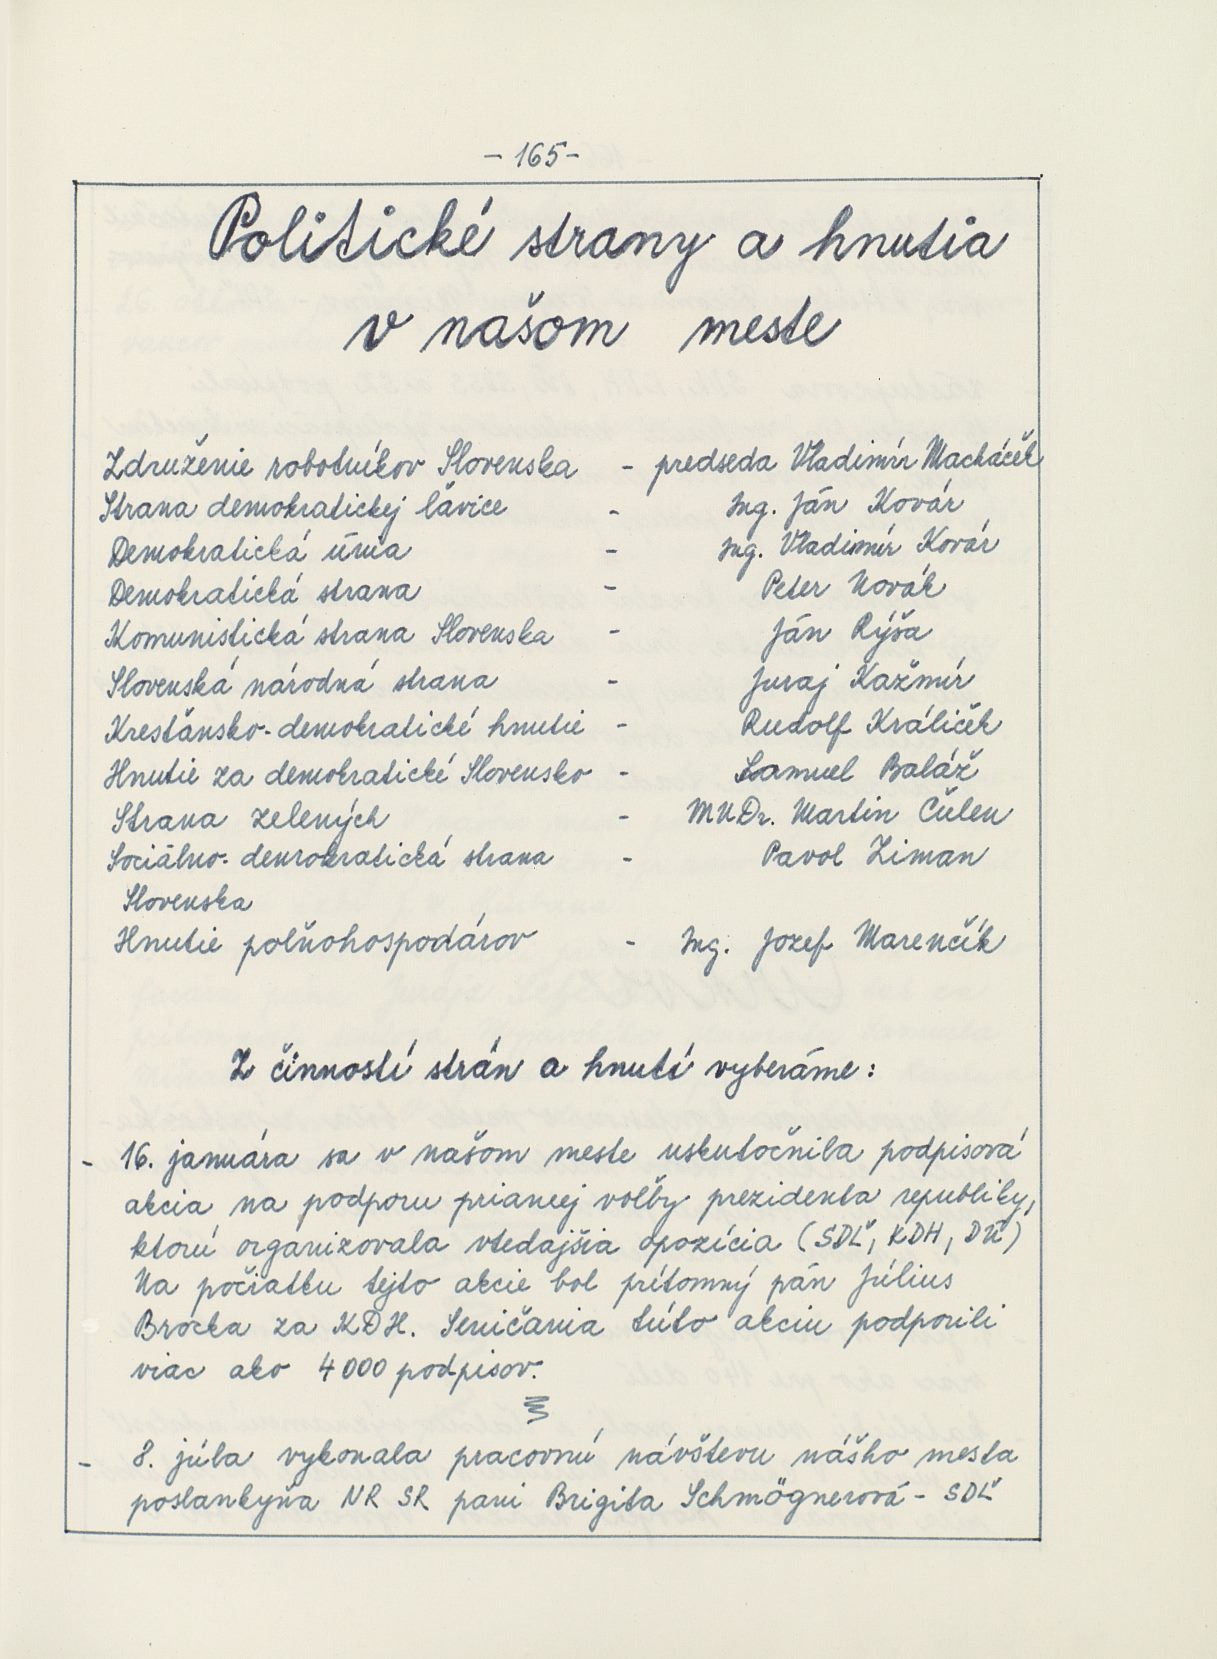 - 165 -
Politické strany a hnutia
v našom meste
Združenie robotníkov Slovenska - predseda Vladimír Macháček
Strana demokratickej ľavice - Ing. Ján Kovár
Demokratická únia - Ing. Vladimír Kovár
Demokratická strana - Peter Novák
Komunistická strana Slovenska - Ján Rýša
Slovenská národná strana - Juraj Kažmír
Kresťansko-demokratické hnutie - Rudolf Králiček
Hnutie za demokratické Slovensko - Samuel Baláž
Strana zelených - MUDr. Martin Čulen
Sociálno-demokratická strana - Pavol Ziman
Slovenska
Hnutie poľnohospodárov - Ing. Jozef Marenčík
Z činností strán a hnutí vyberáme:
- 16. januára sa v našom meste uskutočnila podpisová
akcia na podporu priamej voľby prezidenta republiky,
ktorú organizovala vtedajšia opozícia (SDĽ, KDH, DÚ)
Na počiatku tejto akcie bol prítomný pán Július
Brocka za KDH. Seničania túto akciu podporili
viac ako 4000 podpisov.
- 8. júla vykonala pracovnú návštevu nášho mesta
poslankyňa NR SR pani Brigita Schmögnerová - SDĽ